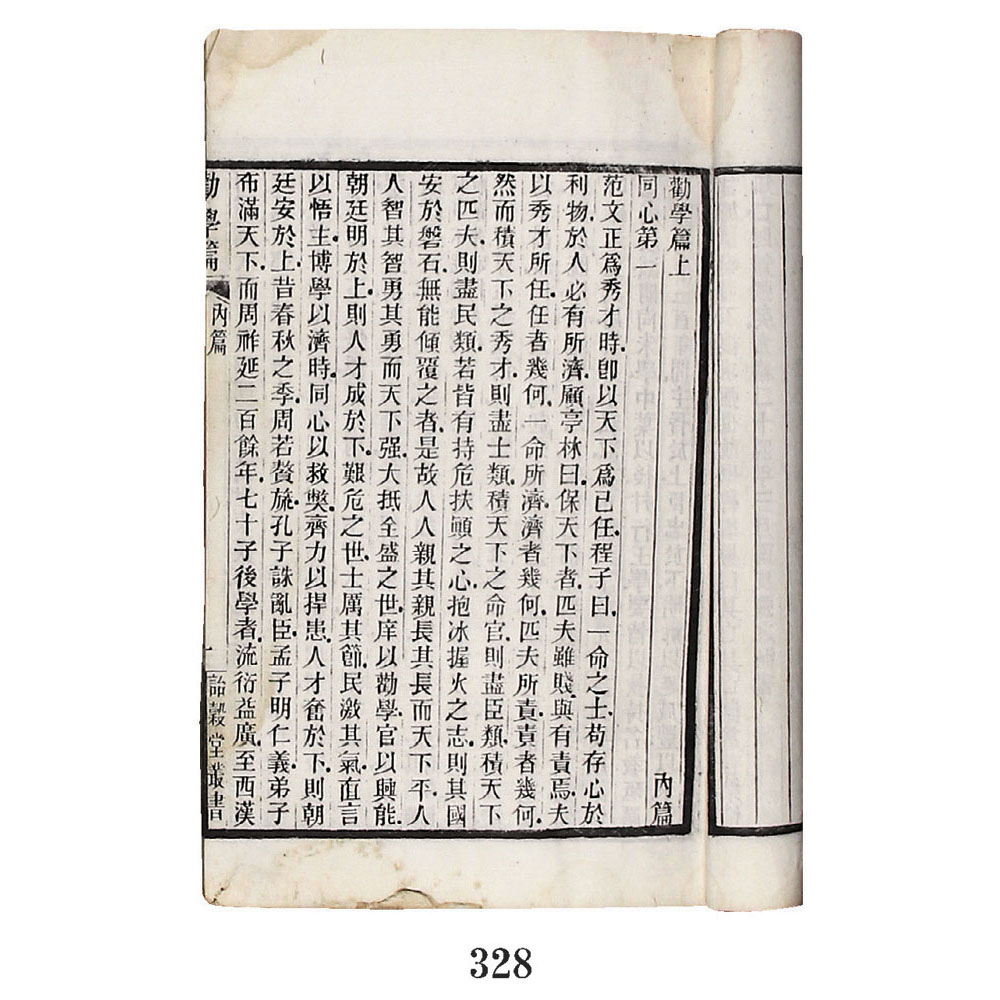 勸學篇上
同心第一 內篇
范文正爲秀才時卽以天下爲己任程子曰一命之士苟存心於
利物於人必有所濟顧亭林曰保天下者匹夫雖賤與有責焉夫
以秀才所任任者幾何一命所濟濟者幾何匹夫所責責者幾何
然而積天下之秀才則盡士類積天下之命官則盡臣類積天下
之匹夫則盡民類若皆有持危扶顚之心抱冰握火之志則其國
安於磐石無能傾覆之者是故人人親其親長其長而天下平人
人智其智勇其勇而天下强大抵全盛之世庠以勸學官以興能
朝廷明於上則人才成於下艱危之世士厲其節民激其氣直言
以悟主博學以濟時同心以救獘齊力以捍患人才奮於下則朝
廷安於上昔春秋之季周若贅旒孔子誅亂臣孟子明仁義弟子
布滿天下而周祚延二百餘年七十子後學者流衍益廣至西漢
勸學篇 內篇 一 詒穀堂叢書
328